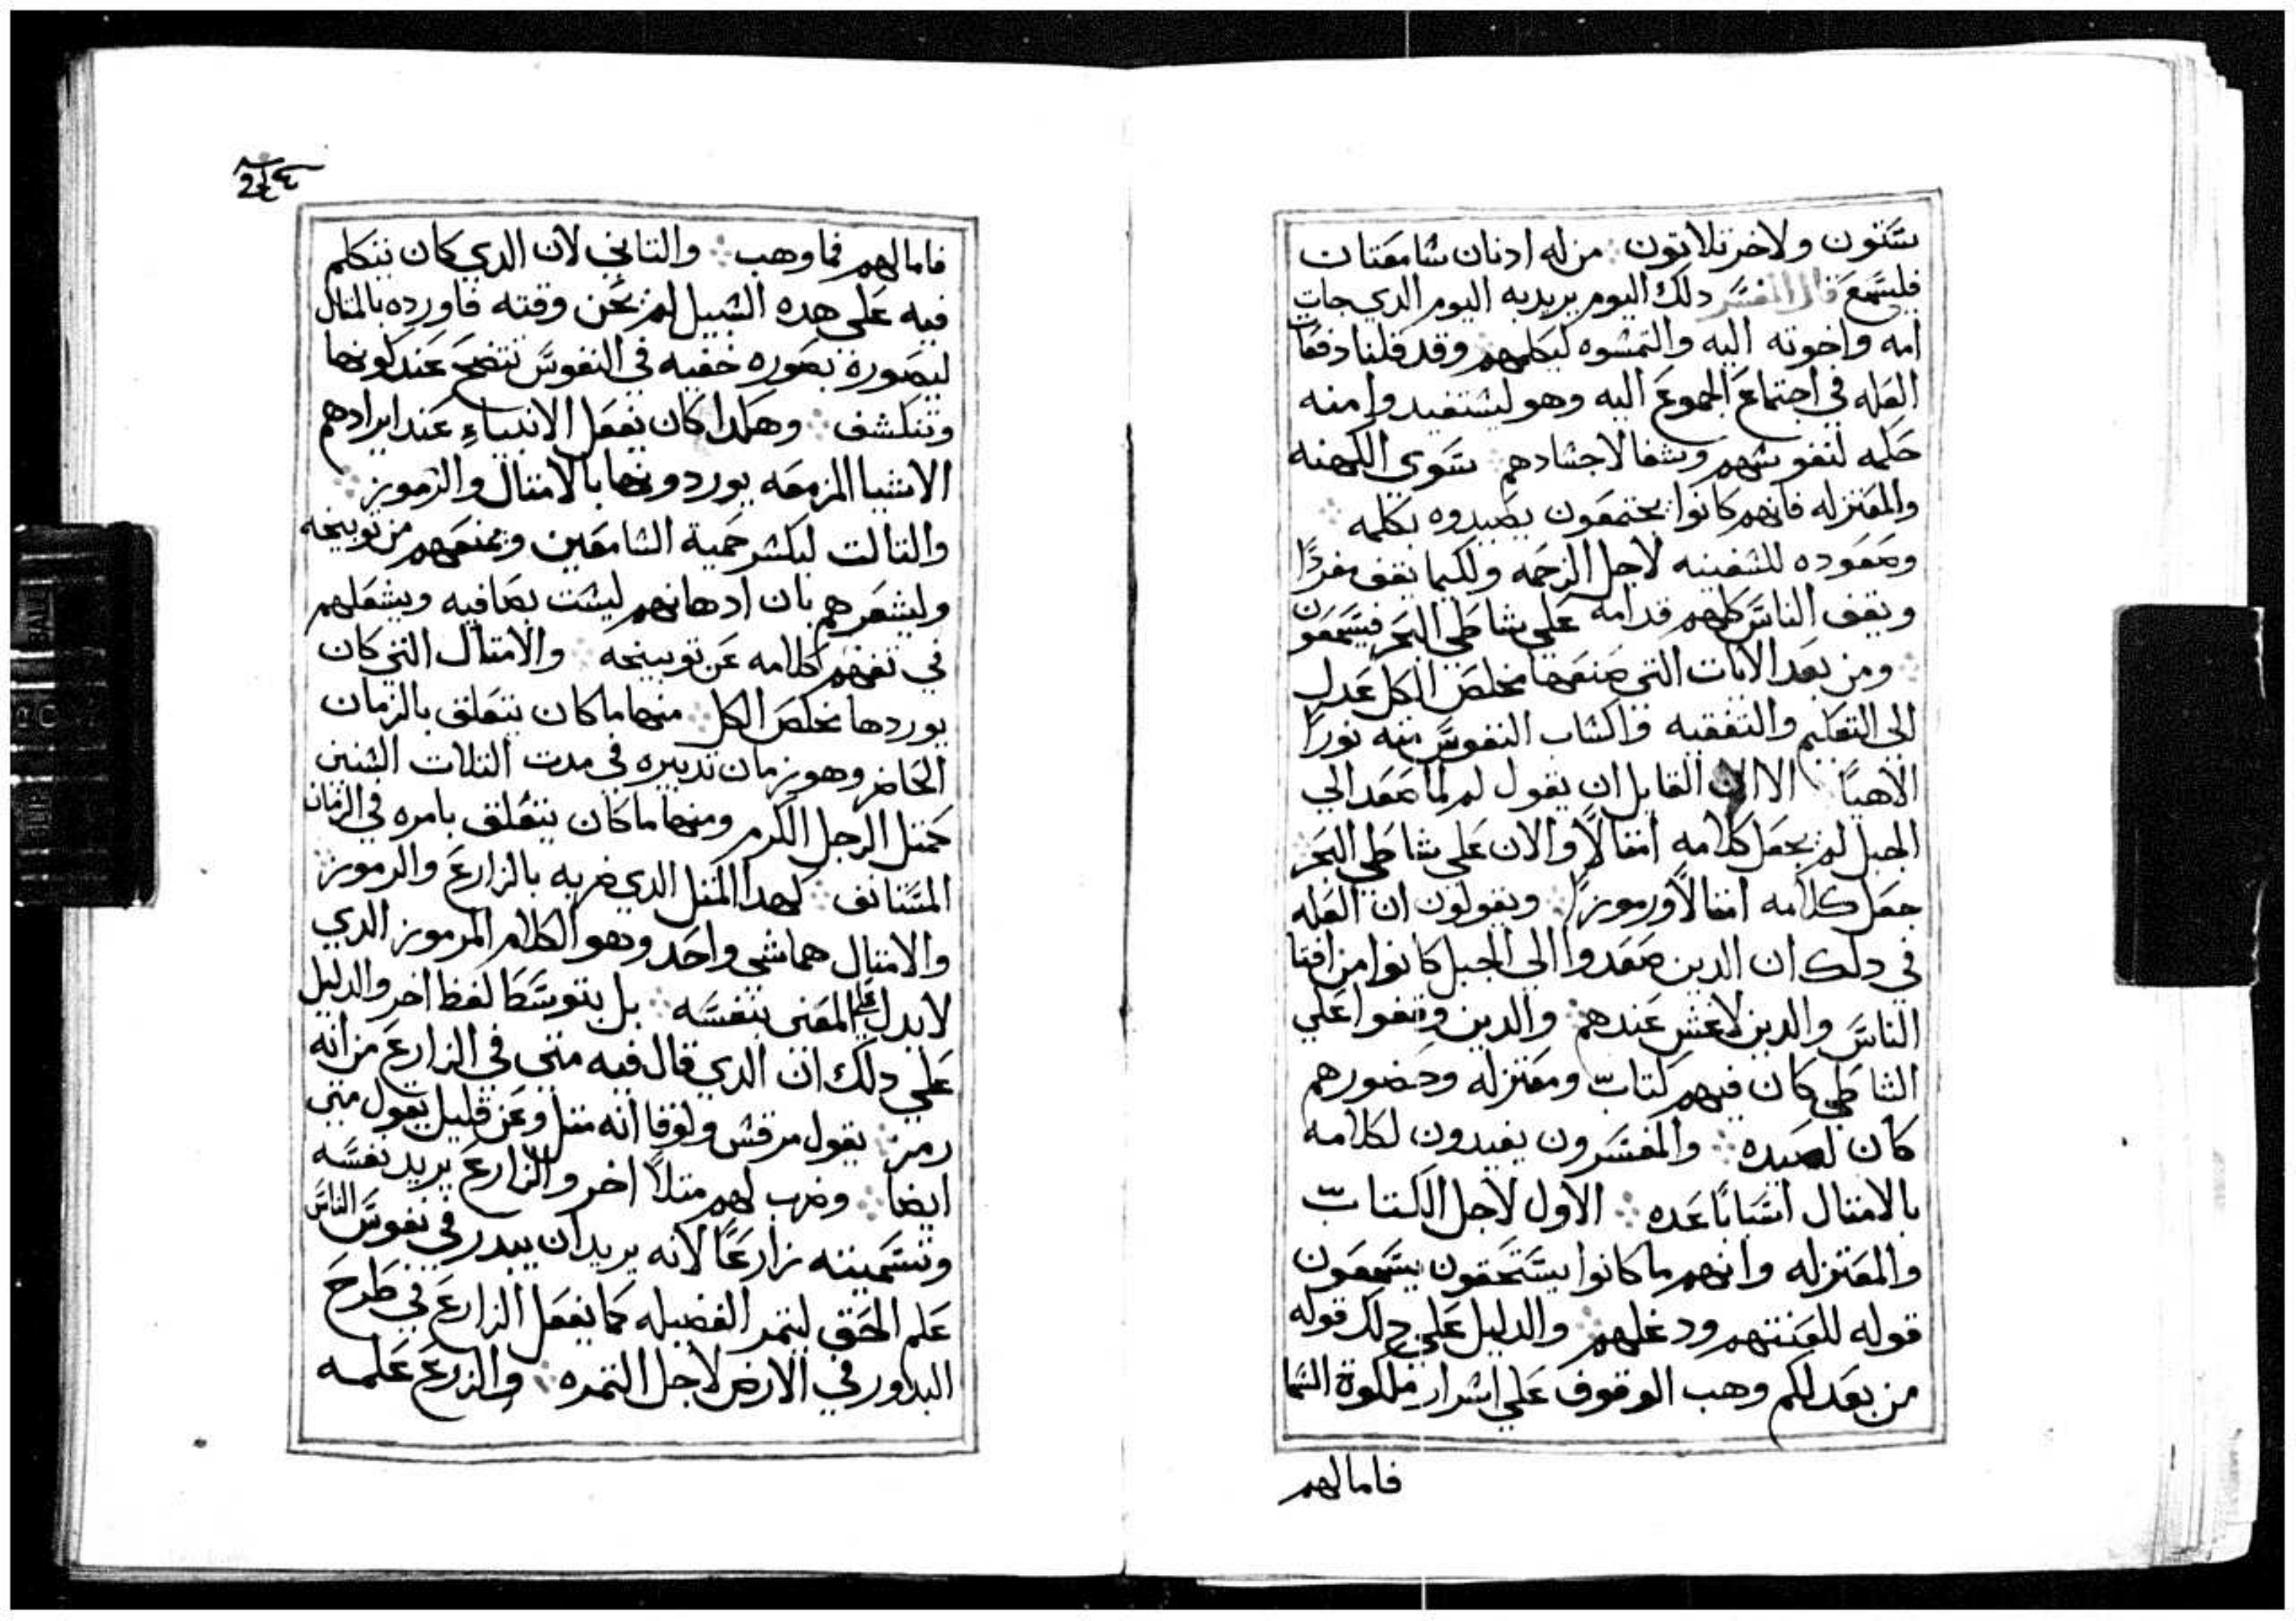 ستون ولاخر تلاتون ⁘ من له ادنان سامعتان
فليسمع قال المفسر دلك اليوم يريد به اليوم الدي جات
امه واخوته اليه والتمسوه ليكلمهم وقد قلنا دفعات
العله في اجتماع الجموع اليه وهو ليستفيدوا منه
حكمه لنفوسهم وشفا لاجسادهم سوى الكهنه
والمعتزله فانهم كانوا يجتمعون يصيدوه بكلمه ⁘
وصعوده للسفينه لاجل الزحمه ولكيما يقف مفردًا
ويقف الناس كلهم قدامه على شاطي البحر فيسمعون
⁘ ومن بعد الايات التي صنعها مخلص الكل عدل
الى التعليم والتفقيه واكساب النفوس منه نورًا
الاهيًا الا ان القايل ان يقول لم لما صعد الي
الجبل لم يجعل كلامه امتالًا والان على شاطي البحر
جعل كلامه امتالًا ورموزًا ⁘ ويقولون ان العله
في دلك ان الدين صعدوا الى الجبل كانوا من افتا
الناس والدين لا غش عندهم ⁘ والدين وقفوا على
الشاطي كان فيهم كتاب ومعتزله وحضورهم
كان لصيده ⁘ والمفسرون يفيدون لكلامه
بالامتال اسبابًا عده ⁘ الاول لاجل الكتاب
والمعتزله وانهم ما كانوا يستحقون يسمعون
قوله للعنتهم ودغلهم ⁘ والدليل على دلك قوله
من بعد لكم وهب الوقوف على اسرار ملكوة السما
فاما لهم
٢٤٤
فاما لهم فما وهب ⁘ والتاني لان الدي كان يتكلم
فيه على هده السبيل لم يحن وقته فاورده بالمتال
ليصوره بصوره خفيه في النفوس تتضح عند كونها
وتنكشف ⁘ وهكدا كان يفعل الانبياء عند ايرادهم
الاشيا المزمعه يوردونها بالامتال والرموز ⁘
والتالت ليكسر حمية السامعين ويمنعهم من توبيخه
وليشعرهم بان ادهانهم ليست بصافيه ويشغلهم
في تفهم كلامه عن توبيخه ⁘ والامتال التي كان
يوردها مخلص الكل ⁘ منها ما كان يتعلق بالزمان
الحاضر وهو زمان تدبيره في مدت التلات السنين
كمتل الرجل الكرم ومنها ما كان يتعلق بامره في الزمان
المستانف ⁘ كهدا المتل الدي ضربه بالزارع والرموز
والامتال هما شي واحد وهو الكلام المرموز الدي
لا يدل على المعنى بنفسه ⁘ بل بتوسط لفظ اخر والدليل
على دلك ان الدي قال فيه متى في الزارع من انه
رمز ⁘ يقول مرقس ولوقا انه متل وعن قليل يقول متى
ايضا ⁘ وضرب لهم متلًا اخر والزارع يريد نفسه
وتسميته زارعًا لانه يريد ان يبدر في نفوس الناس
علم الحق ليتمر الفضيله كما يفعل الزارع في طرح
البداور في الارض لاجل التمره ⁘ والزرع علمه